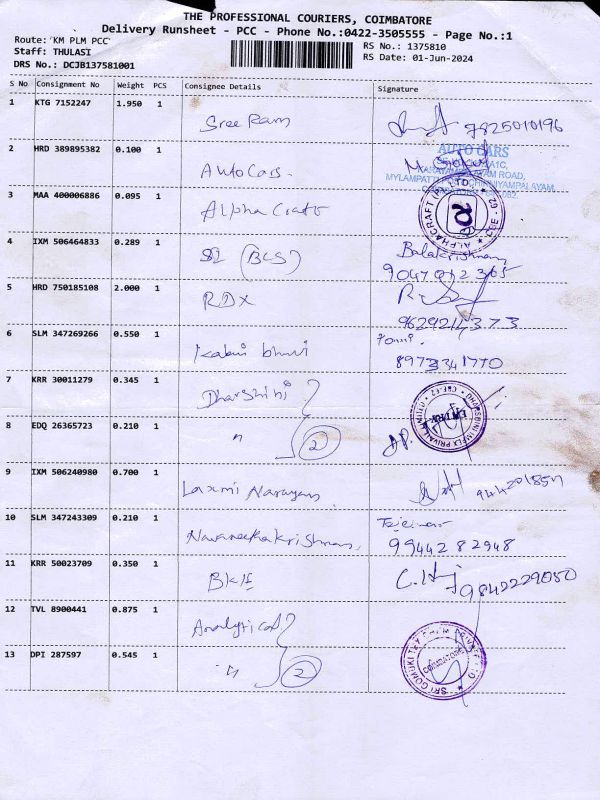 THE PROFESSIONAL COURIERS, COIMBATORE
Delivery Runsheet - PCC - Phone No.:0422-3505555 - Page No.:1
Route: 'KM PLM PCC'
RS No.: 1375810
Staff: THULASI
RS Date: 01-Jun-2024
DRS No.: DCJB137581001
S No Consignment No Weight PCS Consignee Details Signature
1 KTG 7152247 1.950 1 Sree Ram 7825010196
2 HRD 389895382 0.100 1 Auto Cars. AUTO CARS
MYLAMPATTI
3 MAA 400006886 0.095 1 Alpha Craft ALPHACRAFT (P) LTD
4 IXM 506464833 0.289 1 SI (BCS) Balakrishnan
5 HRD 750185108 2.000 1 RDX
6 SLM 347269266 0.550 1
7 KRR 30011279 0.345 1 Dharshini
8 EDQ 26365723 0.210 1 " 2
9 IXM 506240980 0.700 1 Laxmi Narayan
10 SLM 347243309 0.210 1 Navaneethakrishnan,
99442 82948
11 KRR 50023709 0.350 1 9842229080
12 TVL 8900441 0.875 1 Analytical
13 DPI 287597 0.545 1 " 2 COIMBATORE